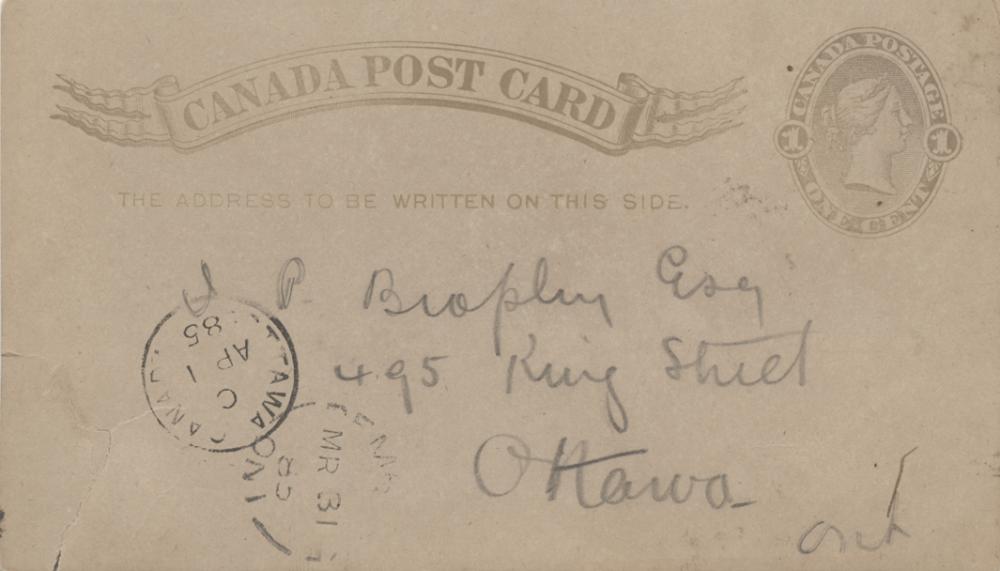 CANADA POST CARD
CANADA POSTAGE
1 1
ONE CENT
THE ADDRESS TO BE WRITTEN ON THIS SIDE.
J P. Brophy Esq
495 King Street
Ottawa
Ont
OTTAWA CANADA
C
1
AP
85
MR 31
85
ONT